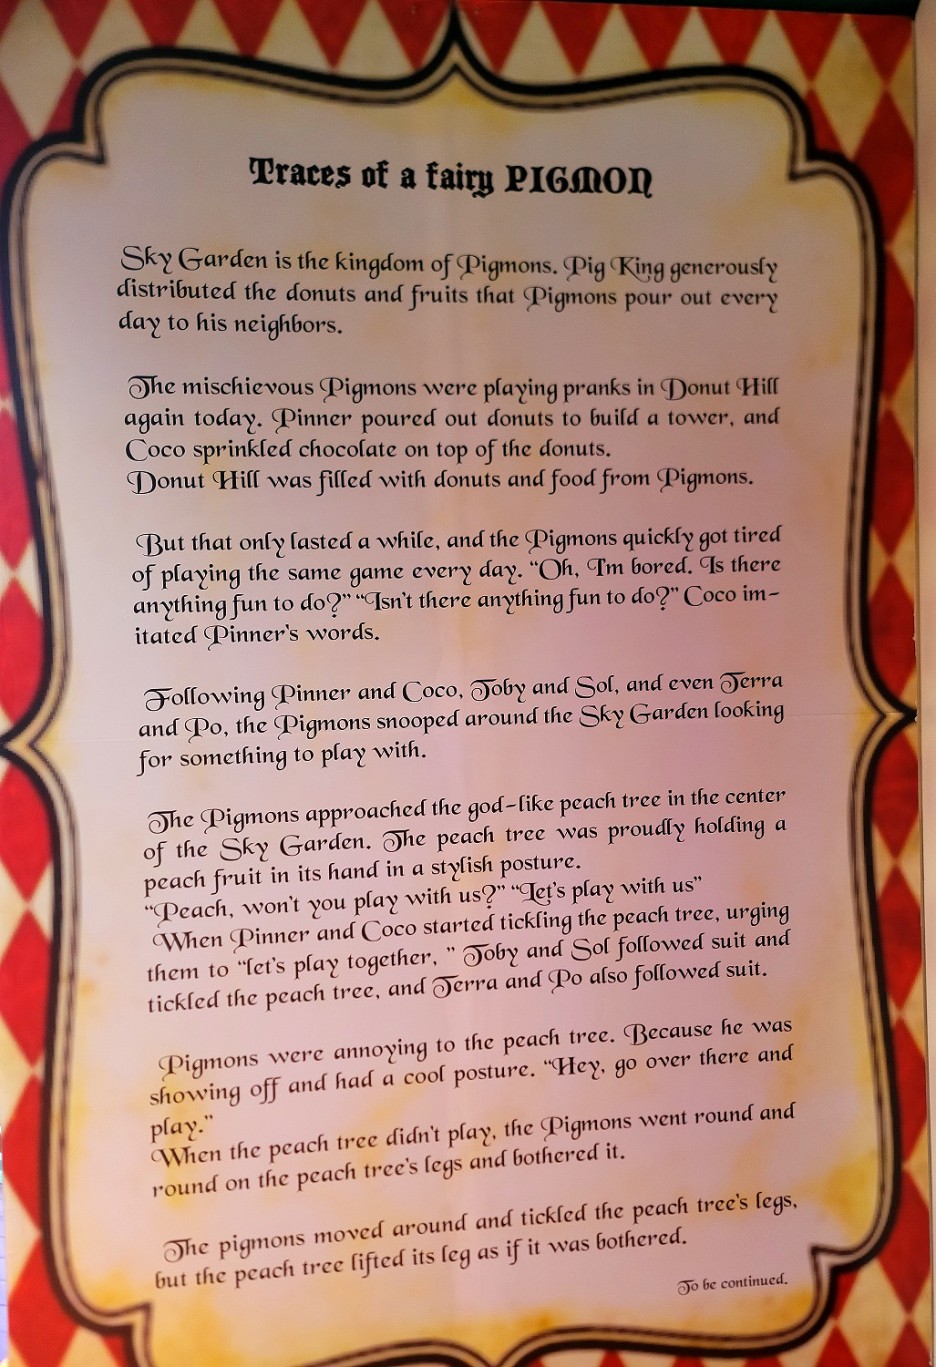 Traces of a fairy PIGMON
Sky Garden is the kingdom of Pigmons. Pig King generously
distributed the donuts and fruits that Pigmons pour out every
day to his neighbors.
The mischievous Pigmons were playing pranks in Donut Hill
again today. Pinner poured out donuts to build a tower, and
Coco sprinkled chocolate on top of the donuts.
Donut Hill was filled with donuts and food from Pigmons.
But that only lasted a while, and the Pigmons quickly got tired
of playing the same game every day. “Oh, I'm bored. Is there
anything fun to do?” “Isn't there anything fun to do?” Coco im-
itated Pinner's words.
Following Pinner and Coco, Toby and Sol, and even Terra
and Po, the Pigmons snooped around the Sky Garden looking
for something to play with.
The Pigmons approached the god-like peach tree in the center
of the Sky Garden. The peach tree was proudly holding a
peach fruit in its hand in a stylish posture.
“Peach, won't you play with us?” “Let's play with us”
When Pinner and Coco started tickling the peach tree, urging
them to “let's play together, ” Toby and Sol followed suit and
tickled the peach tree, and Terra and Po also followed suit.
Pigmons were annoying to the peach tree. Because he was
showing off and had a cool posture. “Hey, go over there and
play.”
When the peach tree didn't play, the Pigmons went round and
round on the peach tree's legs and bothered it.
The pigmons moved around and tickled the peach tree's legs,
but the peach tree lifted its leg as if it was bothered.
To be continued.